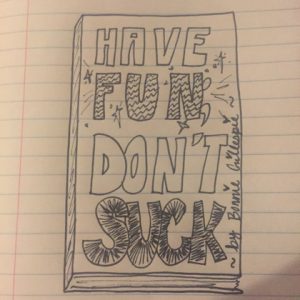 HAVE
FUN,
DON'T
SUCK
~ by Bonnie Gillespie ~